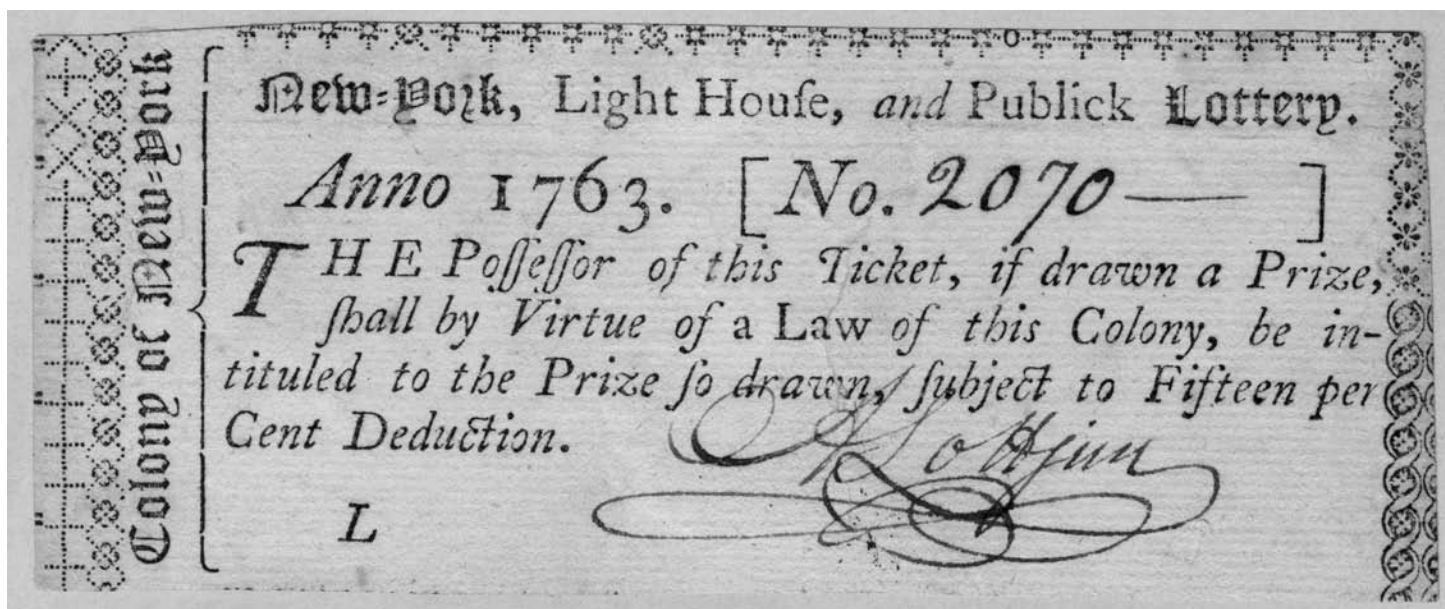 Colony of New=York
New=York, Light Houſe, and Publick Lottery.
Anno 1763. [ No. 2070 — ]
THE Poſſeſſor of this Ticket, if drawn a Prize,
ſhall by Virtue of a Law of this Colony, be in-
tituled to the Prize ſo drawn, ſubject to Fifteen per
Cent Deduction.
L